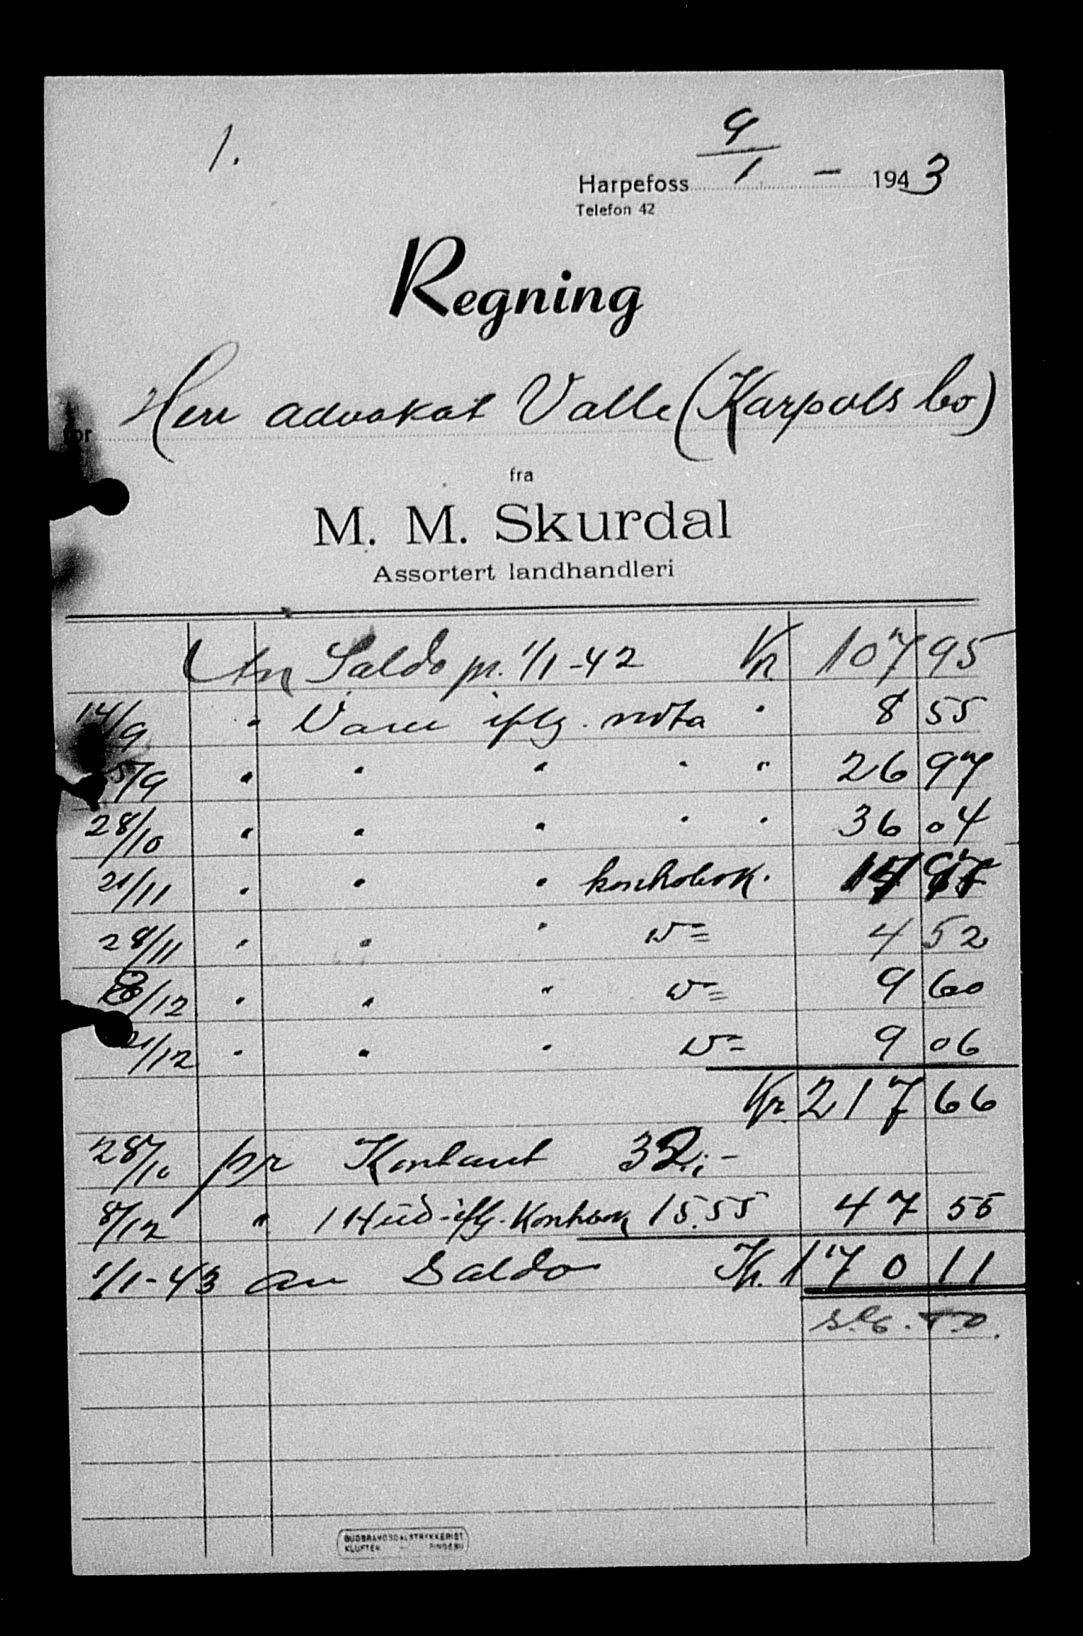 1.
9/1 - 1943
Harpefoss
Telefon 42
Regning
for Herr advokat Valle (Karpols bo)
fra
M. M. Skurdal
Assortert landhandleri
An Saldo pr. 1/1-42 Kr. 107 95
14/9 " Varer iflg. nota " 8 55
5/9 " " " " " 26 97
28/10 " " " " " 36 04
21/11 " " " kontrabok.
28/11 " " " 4 52
8/12 " " " 9 60
21/12 " " " 9 06
Kr. 217 66
28/10 pr Kontant 32,-
8/12 " 1 Hud iflg. Kontrabok 15.55 47 55
1/1-43 an Saldo Kr. 170 11
GUDBRANDSDALSTRYKKERIET
KLUFTEN - RINGEBU